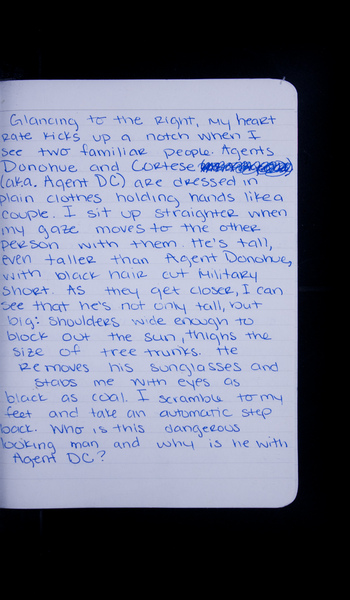 Glancing to the right, my heart
rate kicks up a notch when I
see two familiar people. Agents
Donohue and Cortese
(a.k.a. Agent DC) are dressed in
plain clothes holding hands like a
couple. I sit up straighter when
my gaze moves to the other
person with them. He's tall,
even taller than Agent Donohue,
with black hair cut military
short. As they get closer, I can
see that he's not only tall, but
big: shoulders wide enough to
block out the sun, thighs the
size of tree trunks. He
removes his sunglasses and
stabs me with eyes as
black as coal. I scramble to my
feet and take an automatic step
back. Who is this dangerous
looking man and why is he with
Agent DC?